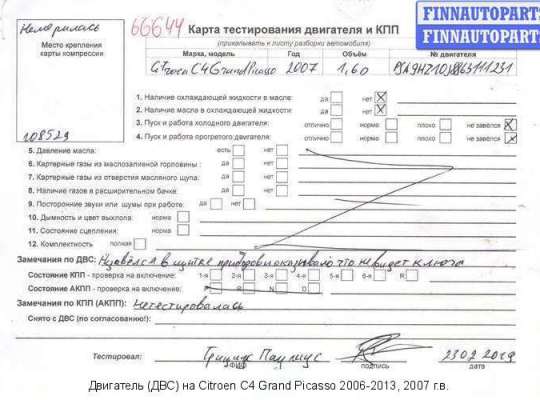 FINNAUTOPARTS
FINNAUTOPARTS
Немерилась
Место крепления
карты компрессии
108529
66644 Карта тестирования двигателя и КПП
(прикалывать к листу разборки автомобиля)
Марка, модель Год Объём № двигателя
Citroen C4 Grand Picasso 2007 1,60
1. Наличие охлаждающей жидкости в масле: да нет X
2. Наличие масла в охлаждающей жидкости: да нет X
3. Пуск и работа холодного двигателя: отлично норма плохо не завёлся X
4. Пуск и работа прогретого двигателя: отлично норма плохо не завёлся X
5. Давление масла: есть нет
6. Картерные газы из маслозаливной горловины: да нет
7. Картерные газы из отверстия масляного щупа: да нет
8. Наличие газов в расширительном бачке: да нет
9. Посторонние звуки или шумы при работе: да нет
10. Дымность и цвет выхлопа: норма
11. Состояние сцепления: норма
12. Комплектность полная
Замечания по ДВС: Не завёлся в щитке приборов показывало что не видит ключа
Состояние КПП - проверка на включение: 1-я 2-я 3-я 4-я 5-я 6-я R
Состояние АКПП - проверка на включение: P R N D
Замечания по КПП (АКПП): Не тестировалась
Снято с ДВС (по согласованию!):
Тестировал: ФИО подпись 23 02 2019
Двигатель (ДВС) на Citroen C4 Grand Picasso 2006-2013, 2007 г.в.